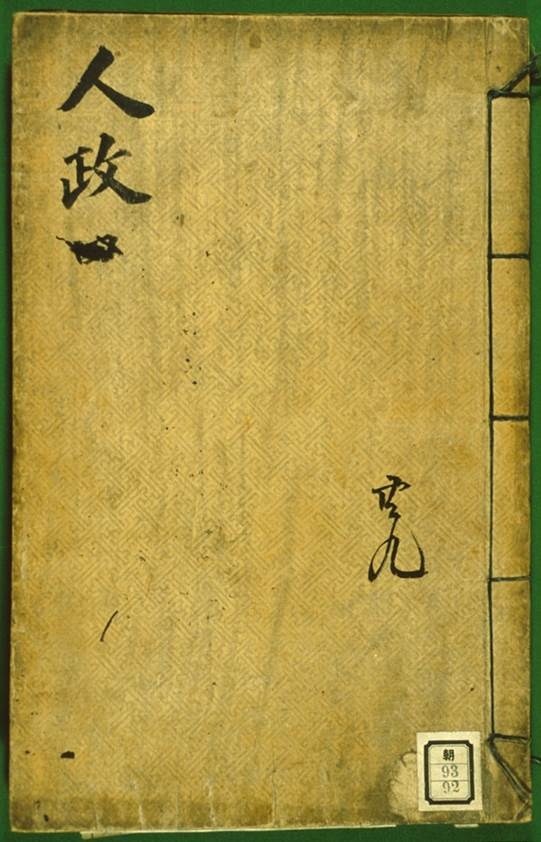 人政
九
朝
93
92